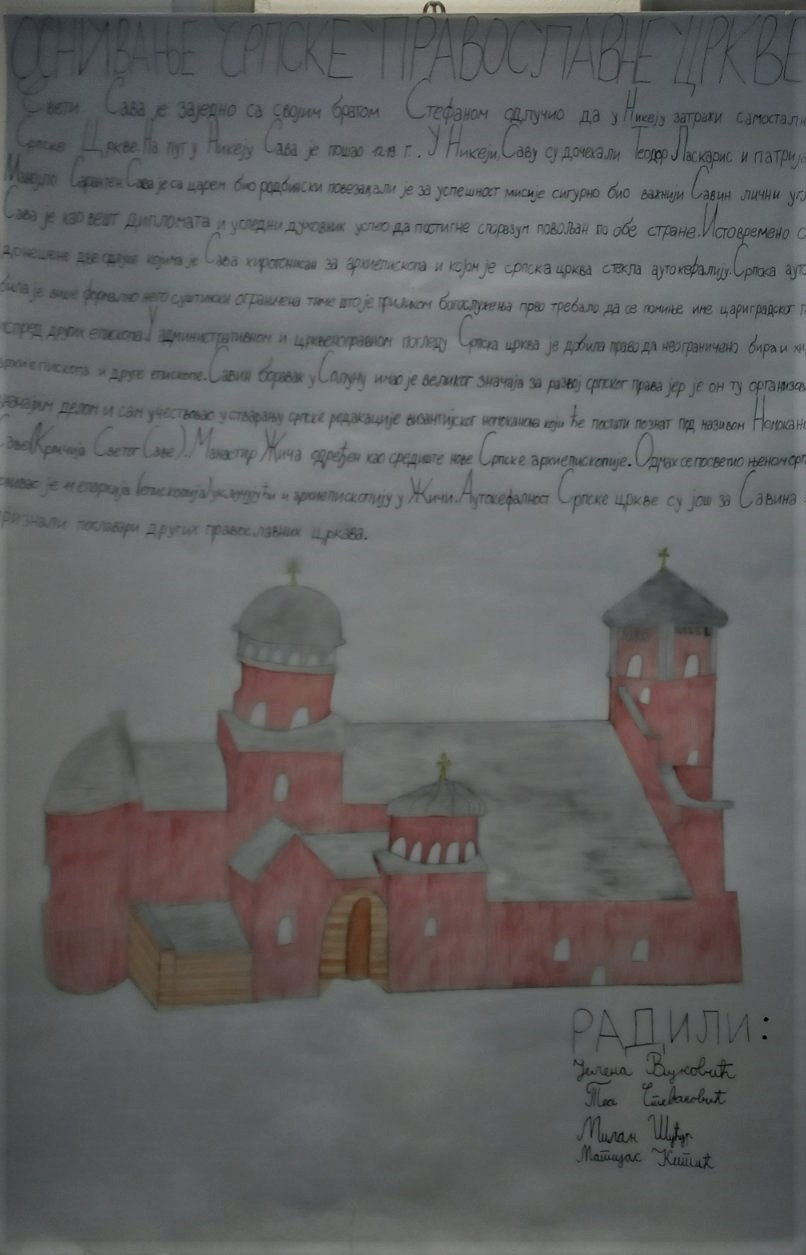 ОСНИВАЊЕ СРПСКЕ ПРАВОСЛАВНЕ ЦРКВЕ
Свети Сава је заједно са својим братом Стефаном одлучио да у Никеју затражи самосталн
Српске Цркве. На пут у Никеју Сава је пошао 1219. г.. У Никеји, Саву су дочекали Теодор Ласкарис и патрија
Манојло Сарантен. Сава је са царем био родбински повезан, али је за успешност мисије сигурно био важнији Савин лични угл
Сава је као вешт дипломата и угледни духовник успео да постигне споразум повољан по обе стране. Истовремено с
донешене две одлуке којима је Сава хиротонисан за архиепископа и којом је српска црква стекла аутокефалију. Српска ауто
била је више формално него суштински ограничена тиме што је приликом богослужења прво требало да се помиње име цариградског п
испред других епископа. У административном и црквеноправном погледу Српска црква је добила право да неограничено бира и хи
архиепископа и друге епископе. Савин боравак у Солуну имао је великог значаја за развој српског права јер је он ту организова
значајим делом и сам учествовао у стварању српске редакације византијског номоканона који ће постати познат под називом Номокано
Саве (Крмчија Светог Саве). Манастир Жича одређен као средиште нове Српске архиепископије. Одмах се посветио њеном орг
снивао је и епархија (епископија) укључујући и архиепископију у Жичи. Аутокефалност Српске цркве су још за Савина
признали поглавари других православних цркава.
РАДИЛИ:
Јелена Вуковић
Теа Стевановић
Милан Шућур
Матијас Китић